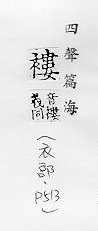 四聲篇海
褸
音樓
義同
(衣部·P513)